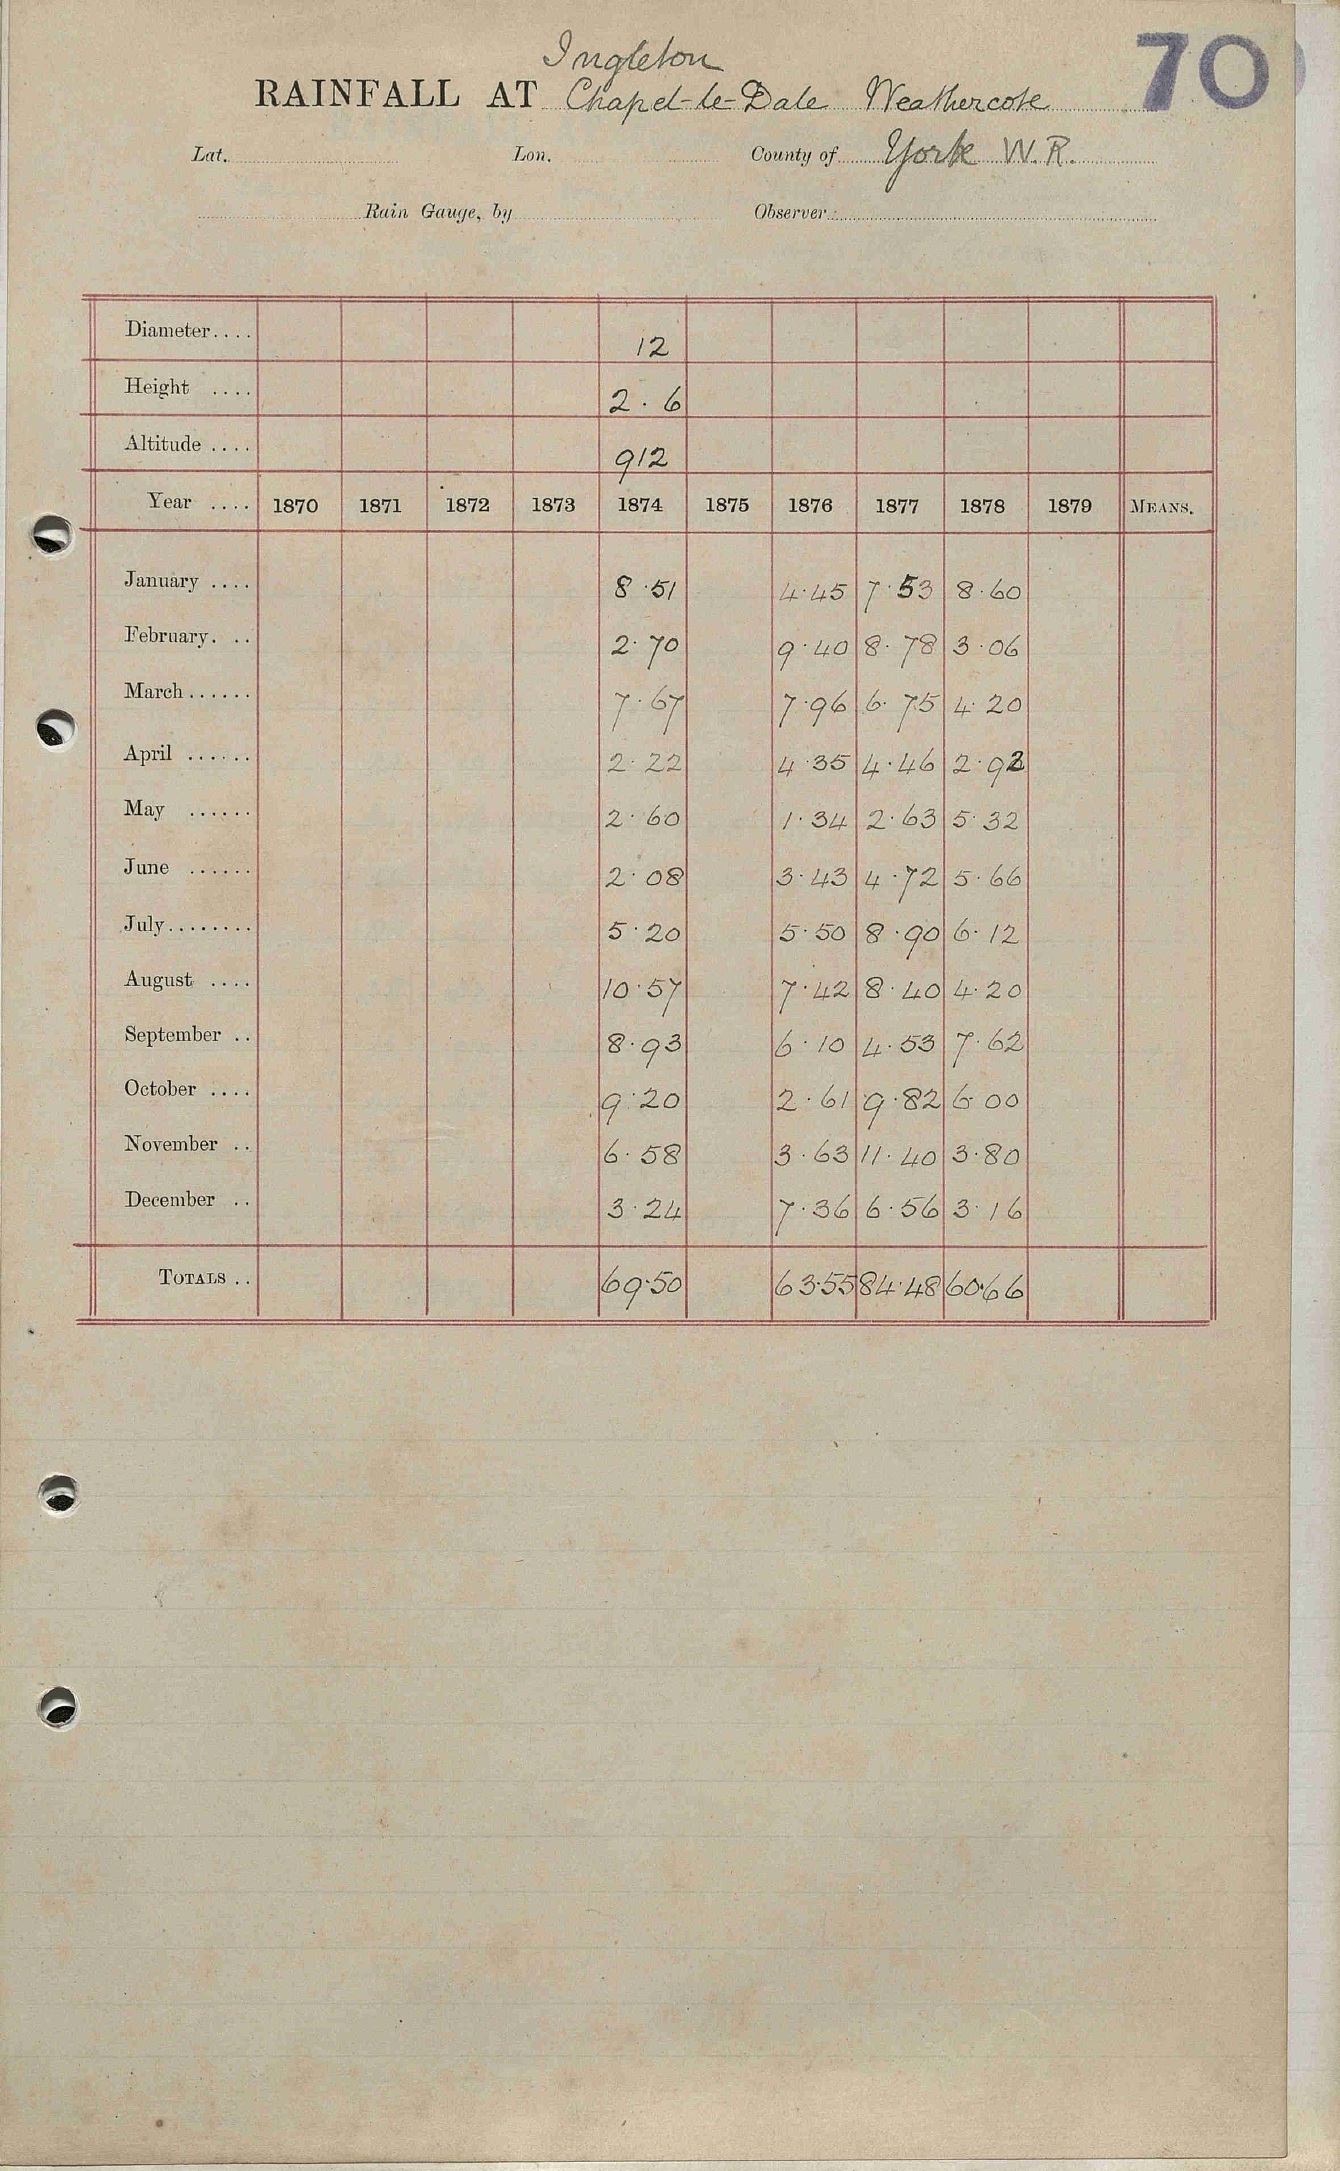 70
Ingleton
RAINFALL AT Chapel-le-Dale Weathercote
Lat. Lon. County of York W.R.
Rain Gauge, by Observer
Diameter.... 12
Height .... 2.6
Altitude .... 912
Year .... 1870 1871 1872 1873 1874 1875 1876 1877 1878 1879 MEANS.
January .... 8.51 4.45 7.53 8.60
February. .. 2.70 9.40 8.78 3.06
March...... 7.67 7.96 6.75 4.20
April ...... 2.22 4.35 4.46 2.92
May ...... 2.60 1.34 2.63 5.32
June ...... 2.08 3.43 4.72 5.66
July........ 5.20 5.50 8.90 6.12
August .... 10.57 7.42 8.40 4.20
September .. 8.93 6.10 4.53 7.62
October .... 9.20 2.61 9.82 6.00
November .. 6.58 3.63 11.40 3.80
December .. 3.24 7.36 6.56 3.16
TOTALS .. 69.50 63.55 84.48 60.66